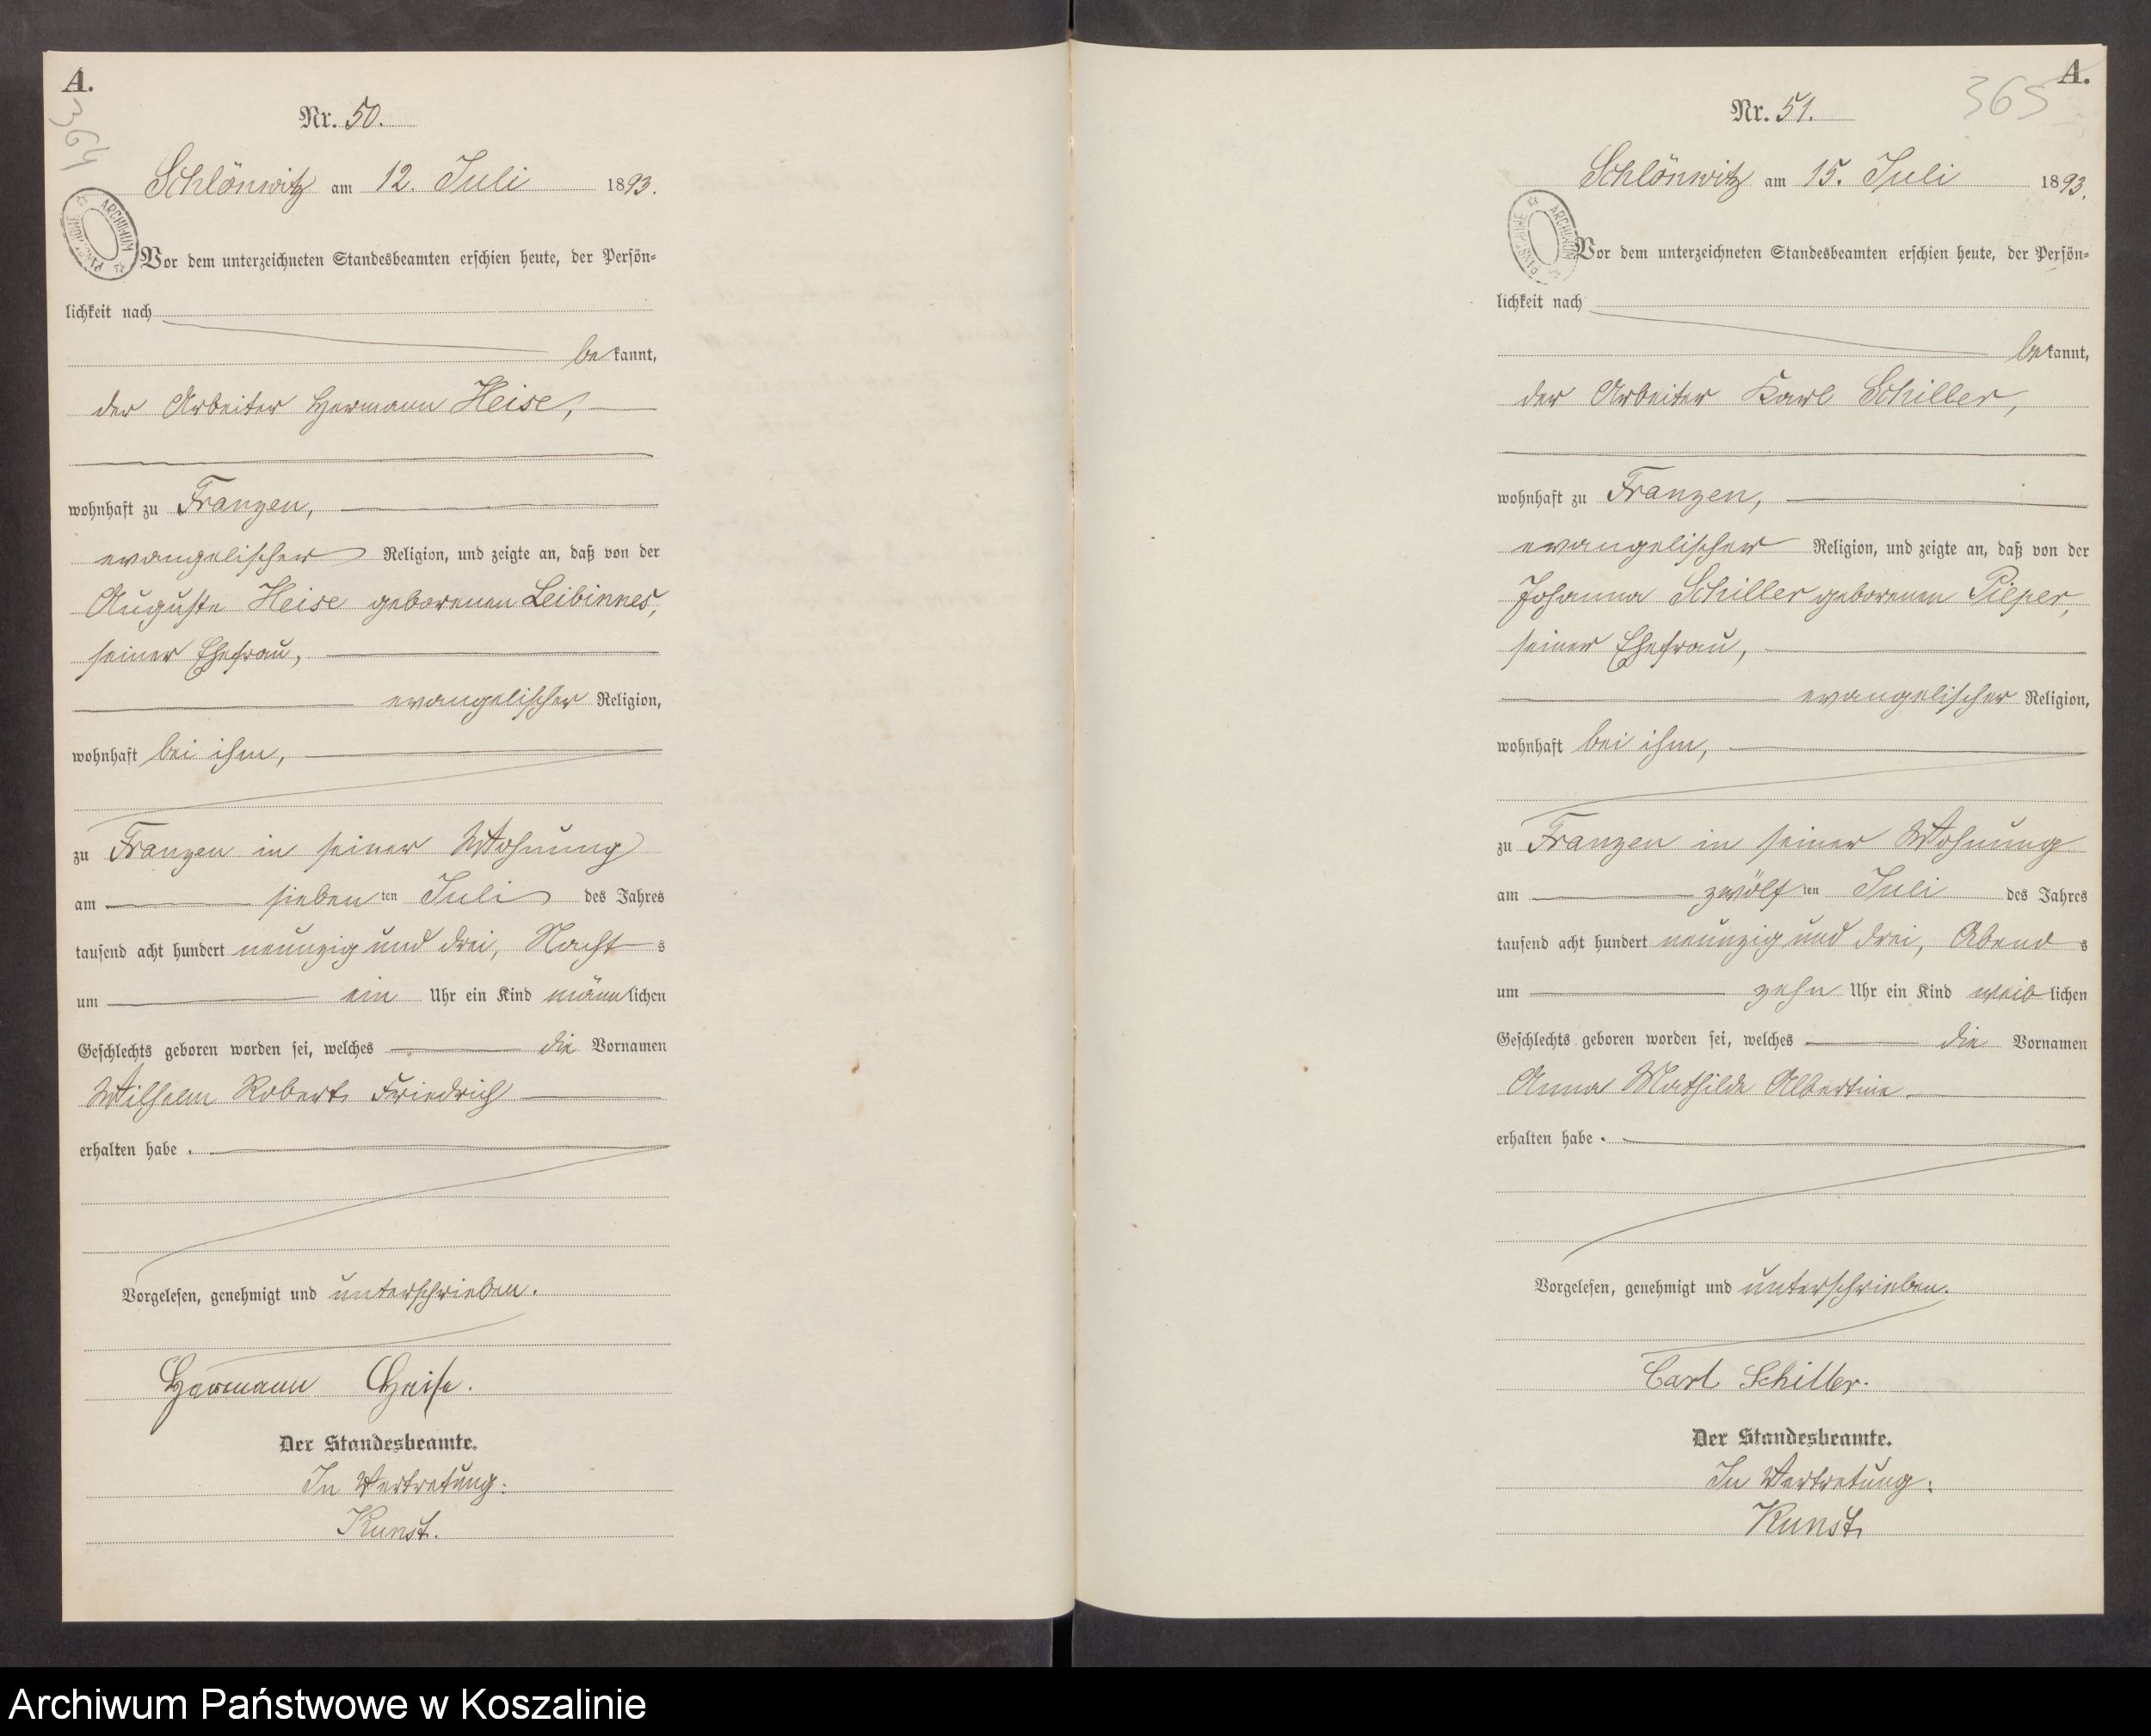 A.
364
Nr. 50.
Schlönwitz am 12. Juli 1893.
Vor dem unterzeichneten Standesbeamten erschien heute, der Persön=
lichkeit nach
be kannt,
der Arbeiter Hermann Heise,
wohnhaft zu Franzen,
evangelischer Religion, und zeigte an, daß von der
Auguste Heise geborenen Leibinnes,
seiner Ehefrau,
evangelischer Religion,
wohnhaft bei ihm,
zu Franzen in seiner Wohnung
am sieben ten Juli des Jahres
tausend acht hundert neunzig und drei, Nacht s
um ein Uhr ein Kind männlichen
Geschlechts geboren worden sei, welches die Vornamen
Wilhelm Robert Friedrich
erhalten habe .
Vorgelesen, genehmigt und unterschrieben.
Hermann Heise.
Der Standesbeamte.
In Vertretung:
Kunst.
A.
365
Nr. 51.
Schlönwitz am 15. Juli 1893.
ARCHIWUM
Vor dem unterzeichneten Standesbeamten erschien heute, der Persön=
lichkeit nach
bekannt,
der Arbeiter Karl Schiller,
wohnhaft zu Franzen,
evangelischer Religion, und zeigte an, daß von der
Johanna Schiller geborenen Pieper,
seiner Ehefrau,
evangelischer Religion,
wohnhaft bei ihm,
zu Franzen in seiner Wohnung
am zwölf ten Juli des Jahres
tausend acht hundert neunzig und drei, Abend s
um zehn Uhr ein Kind weiblichen
Geschlechts geboren worden sei, welches die Vornamen
Anna Mathilde Albertine
erhalten habe .
Vorgelesen, genehmigt und unterschrieben.
Carl Schiller.
Der Standesbeamte.
In Vertretung:
Kunst.
Archiwum Państwowe w Koszalinie